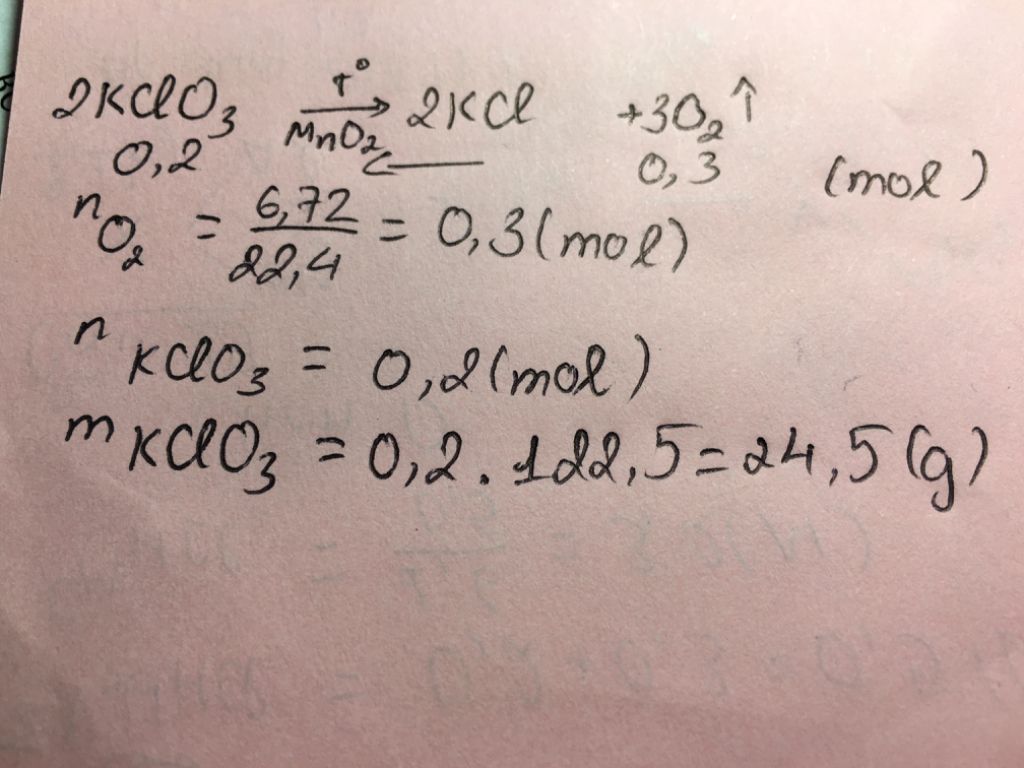 2KClO₃ →(t°, MnO₂) 2KCl + 3O₂ ↑
0,2 ← 0,3 (mol)
nO₂ = 6,72/22,4 = 0,3 (mol)
nKClO₃ = 0,2 (mol)
mKClO₃ = 0,2 . 122,5 = 24,5 (g)